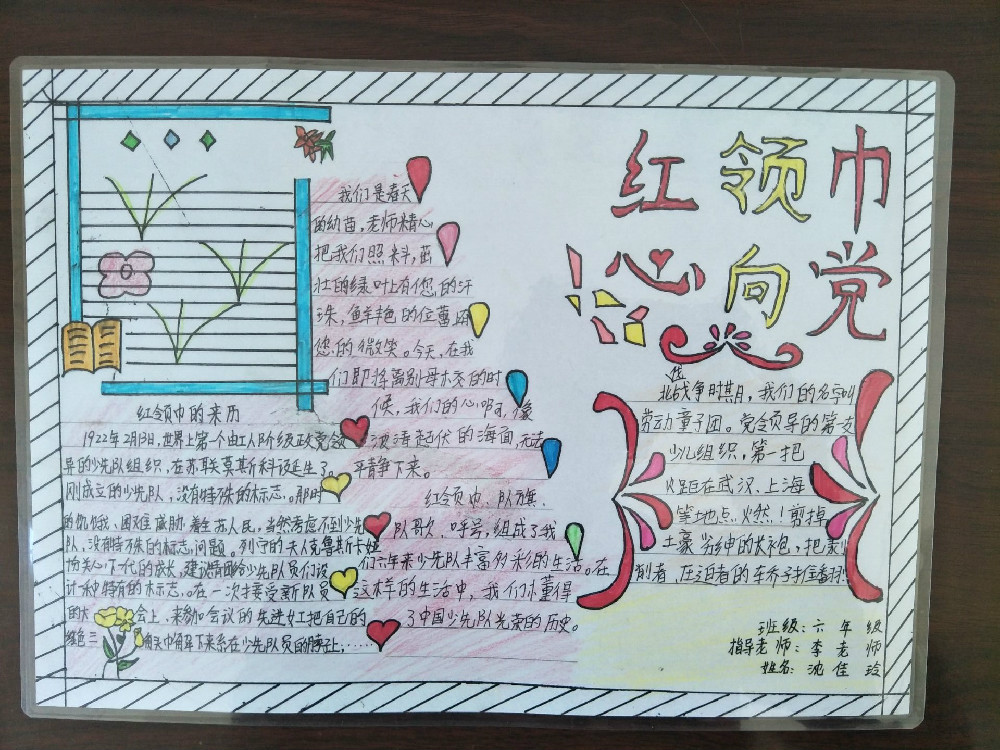 红领巾
心向党
我们是春天
的幼苗,老师精心
把我们照料,茁
壮的绿叶上有您的汗
珠,鲜艳的位蕾
您的微笑。今天,在我
们即将离别母校的时
候,我们的心啊,像
波涛起伏的海面,无法
平静下来。
红领巾、队旗、
队歌、呼号,组成了我
们六年来少先队丰富多彩的生活。在
这样的生活中,我们懂得
了中国少先队光荣的历史。
红领巾的来历
1922年2月13日,世界上第一个由工人阶级政党领
导的少先队组织,在苏联莫斯科诞生了。
刚成立的少先队,没有特殊的标志。那时
的饥饿、困难威胁着苏人民,当然考虑不到少先
队,没有特殊的标志问题。列宁的夫人克鲁斯卡娅
关心下一代的成长,建议请给少先队员们设
计一种特有的标志。在一次接受新队员
的大会上,来参加会议的先进女工把自己的
红色三角头巾解下来系在少先队员的脖子上,……
北伐战争时期,我们的名字叫
劳动童子团。党领导的第一支
少儿组织,第一把
火炬在武汉、上海
等地点火燃!剪掉
土豪劣绅的长袍,把剥
削者,压迫者的车乔子
班级:六年级
指导老师:李老师
姓名:沈佳玲